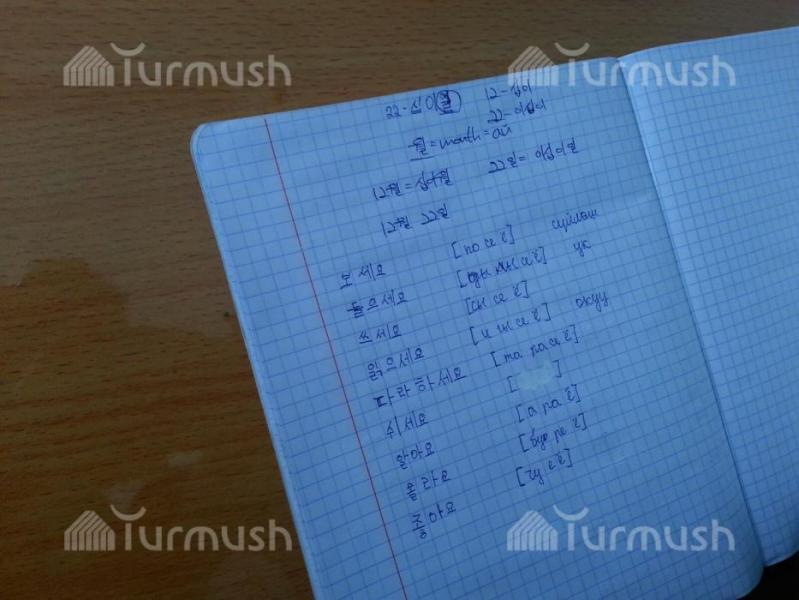 Turmush Turmush
22-십이월 12-십이
22-이십이
월 = month = ай
12월 = 십이월 22일 = 이십이일
12월 22일
보세요 [по се ё] сүйлөш
들으세요 ук
쓰세요 [сы се ё]
읽으세요 окуу
따라하세요 [та ра се ё]
쉬세요 [ ]
알아요 [а ра ё]
몰라요
좋아요
Turmush Turmush